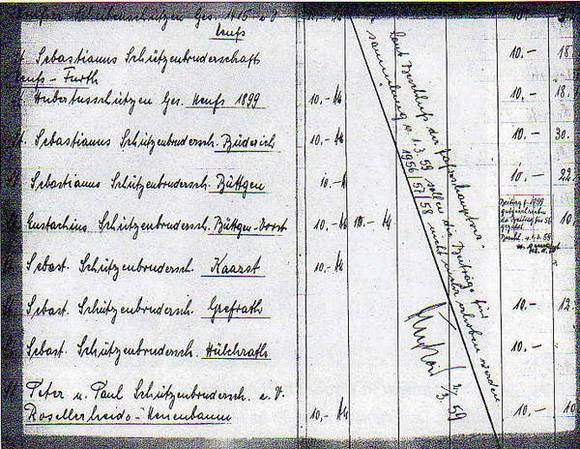 Scheibenschützen Ges. 1415 e.V. 10,- M 10.-
Neuß
St. Sebastianus Schützenbruderschaft 10.- 18.
Neuß - Furth
St. Hubertusschützen Ges. Neuß 1899 10,- M 10.- 18.
St. Sebastianus Schützenbrudersch. Büderich 10,- M 10.- 30.
St. Sebastianus Schützenbrudersch. Büttgen 10.- M 10.- 22.
St. Eustachius Schützenbrudersch. Büttgen-Vorst 10,- M 10.- M 10.
St. Sebast. Schützenbrudersch. Kaarst 10,- M 10.-
St. Sebast. Schützenbrudersch. Grefrath 10.- 12.
St. Sebast. Schützenbrudersch. Hülchrath 10.-
St. Peter u. Paul Schützenbrudersch. e.V.
Rosellerheide-Neuenbaum 10,- M 10.- 10
laut Beschluß der Jahreshauptver-
sammlung v. 1.3.59 sollen die Beiträge für
1956/57/58 nicht mehr erhoben werden
2/3 59